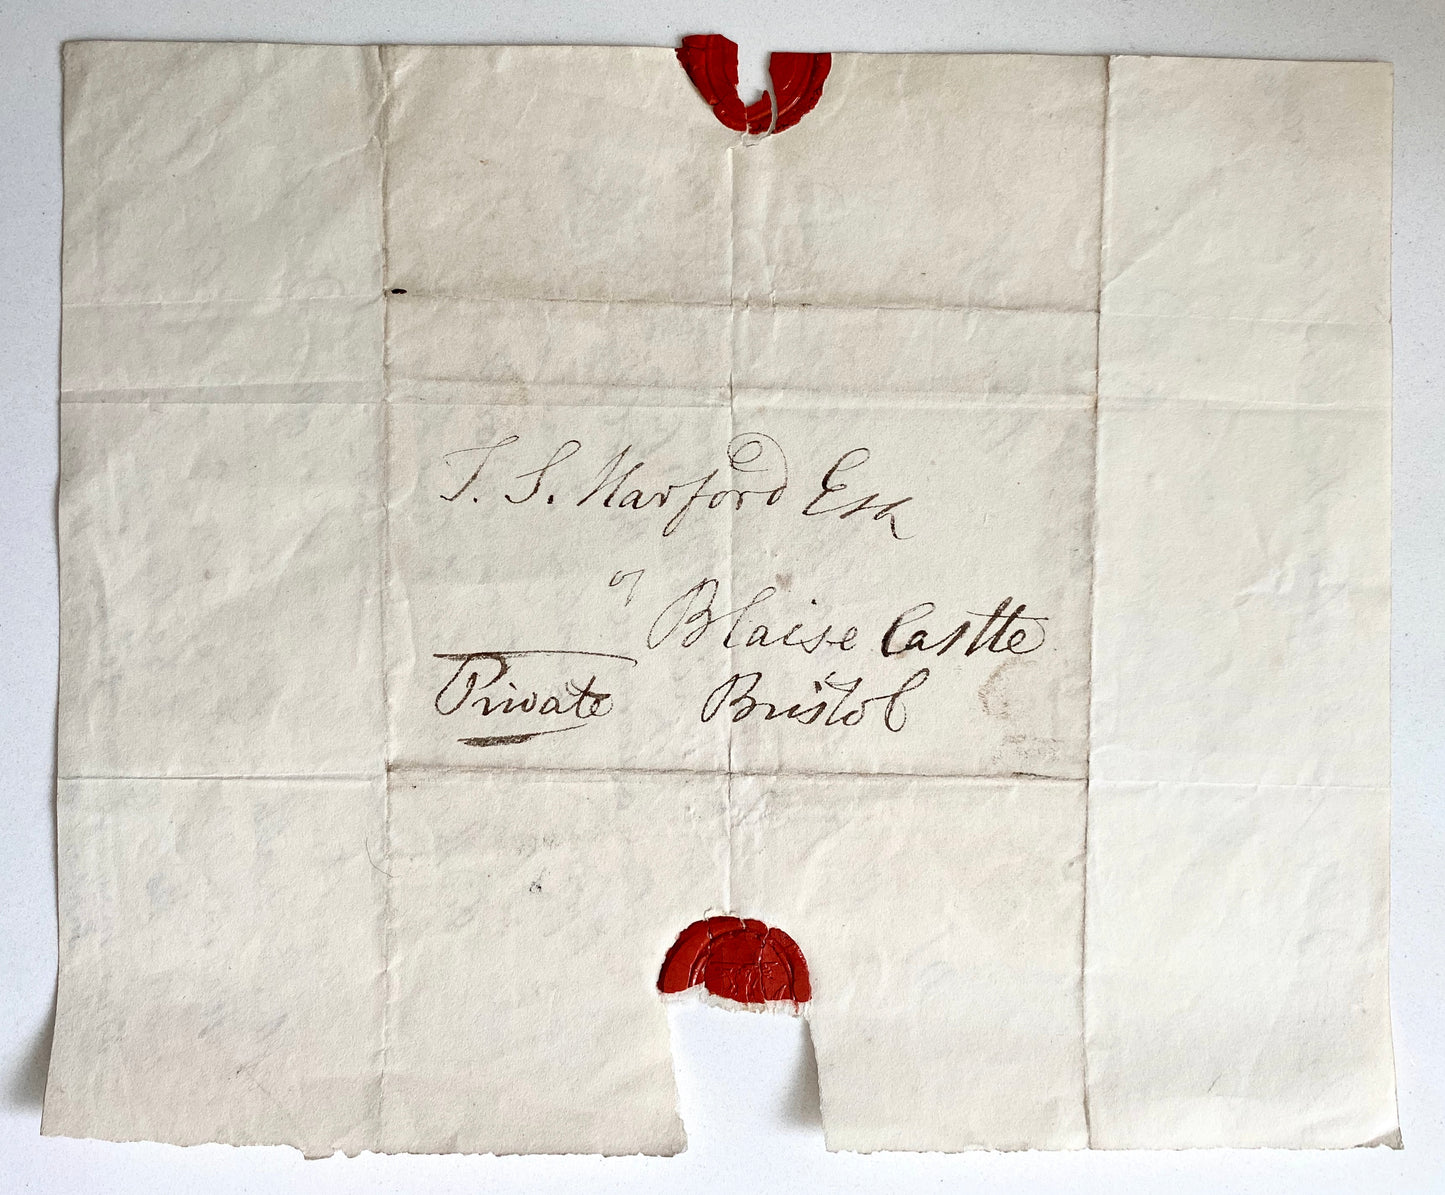 J. S. Harford Esq
of
Blaise Castle
Private Bristol